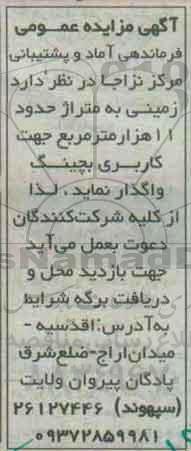 آگهی مزایده عمومی
فرماندهی آماد و پشتیبانی
مرکز نزاجا در نظر دارد
زمینی به متراژ حدود
۱۱هزارمترمربع جهت
کاربری بچینگ
واگذار نماید، لذا
از کلیه شرکت‌کنندگان
دعوت بعمل می‌آید
جهت بازدید محل و
دریافت برگه شرایط
به‌آدرس:اقدسیه -
میدان‌اراج-ضلع‌شرق
پادگان پیروان ولایت
(سپهوند) ۲۶۱۲۷۴۴۶
۰۹۳۷۲۸۵۹۹۸۱